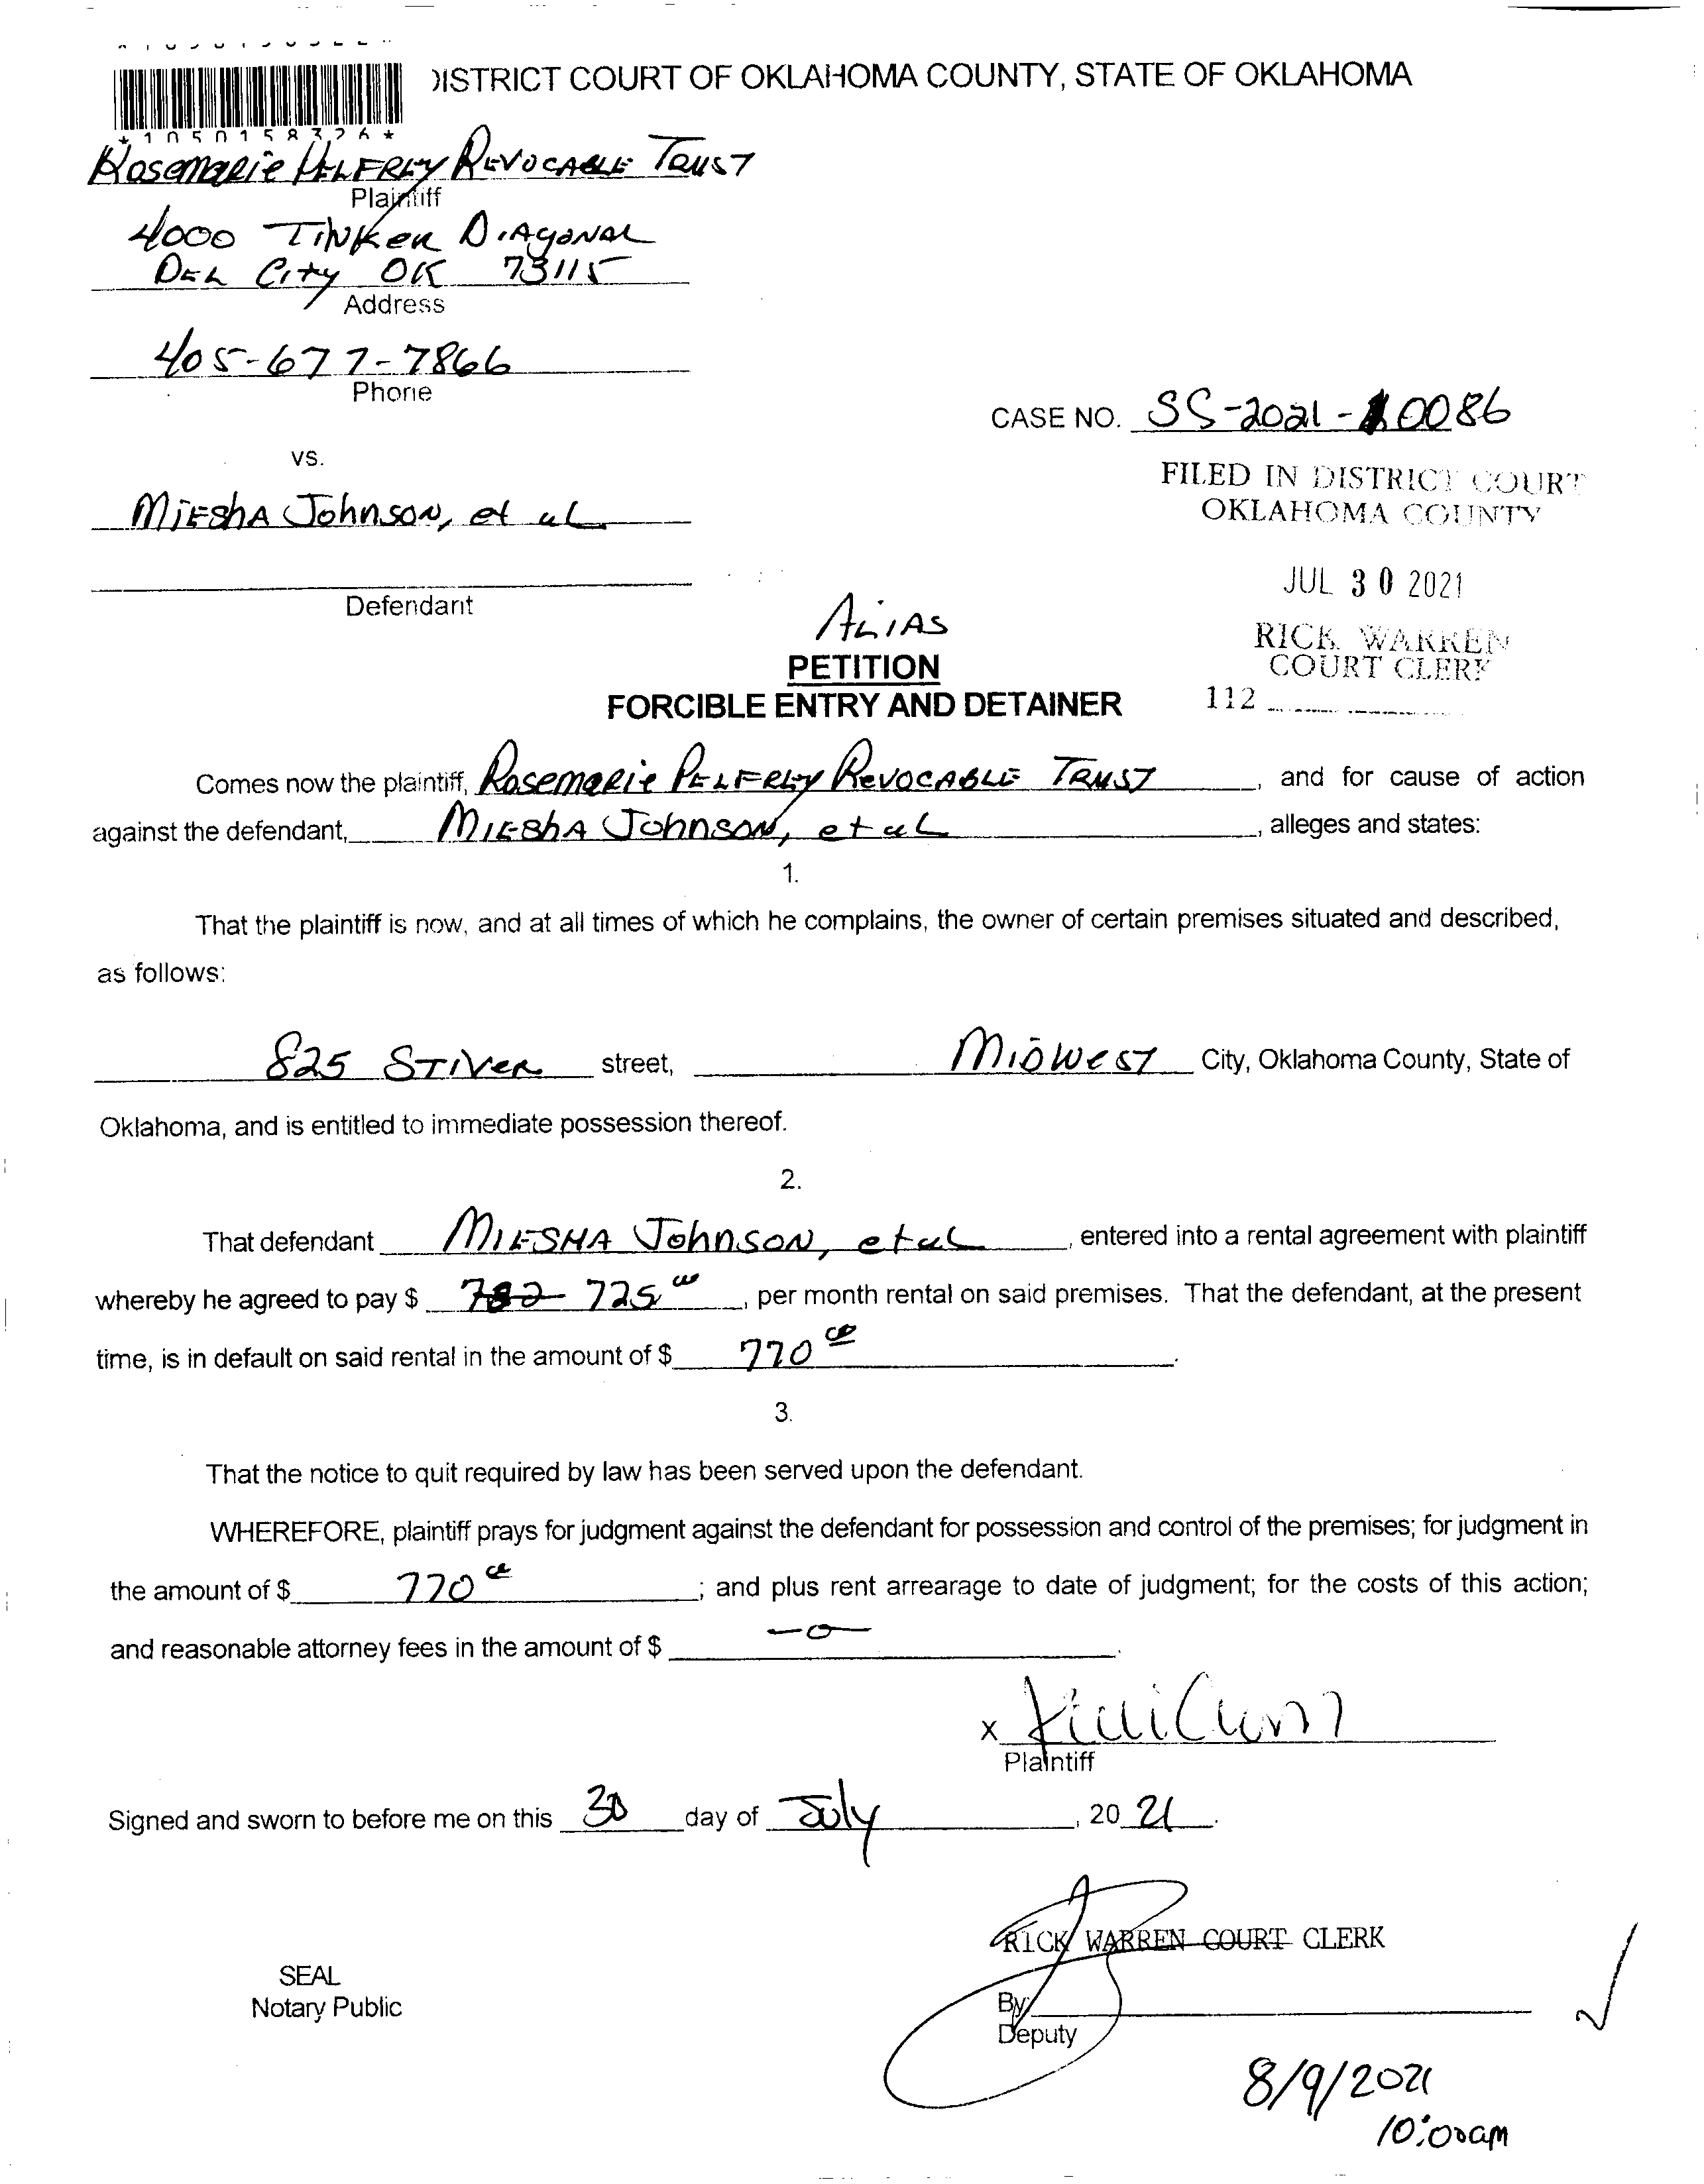 DISTRICT COURT OF OKLAHOMA COUNTY, STATE OF OKLAHOMA
*1050158326*
Rosemarie PELFREY REVOCABLE TRUST
Plaintiff
4000 TINKER DIAGONAL
DEL City OK 73115
Address
405-677-7866
Phone
CASE NO. SS-2021-10086
vs.
FILED IN DISTRICT COURT
OKLAHOMA COUNTY
MIESHA JOHNSON, et al
JUL 30 2021
Defendant
RICK WARREN
COURT CLERK
112
ALIAS
PETITION
FORCIBLE ENTRY AND DETAINER
Comes now the plaintiff, Rosemarie PELFREY REVOCABLE TRUST, and for cause of action
against the defendant, MIESHA JOHNSON, et al, alleges and states:
1.
That the plaintiff is now, and at all times of which he complains, the owner of certain premises situated and described,
as follows:
825 STIVER street, MIDWEST City, Oklahoma County, State of
Oklahoma, and is entitled to immediate possession thereof.
2.
That defendant MIESHA JOHNSON, et al, entered into a rental agreement with plaintiff
whereby he agreed to pay $ 782 725 00, per month rental on said premises. That the defendant, at the present
time, is in default on said rental in the amount of $ 770 00.
3.
That the notice to quit required by law has been served upon the defendant.
WHEREFORE, plaintiff prays for judgment against the defendant for possession and control of the premises; for judgment in
the amount of $ 770 00; and plus rent arrearage to date of judgment; for the costs of this action;
and reasonable attorney fees in the amount of $ -0-.
X
Plaintiff
Signed and sworn to before me on this 30 day of July, 20 21.
RICK WARREN COURT CLERK
SEAL
Notary Public
By:
Deputy
8/9/2021
10:00am